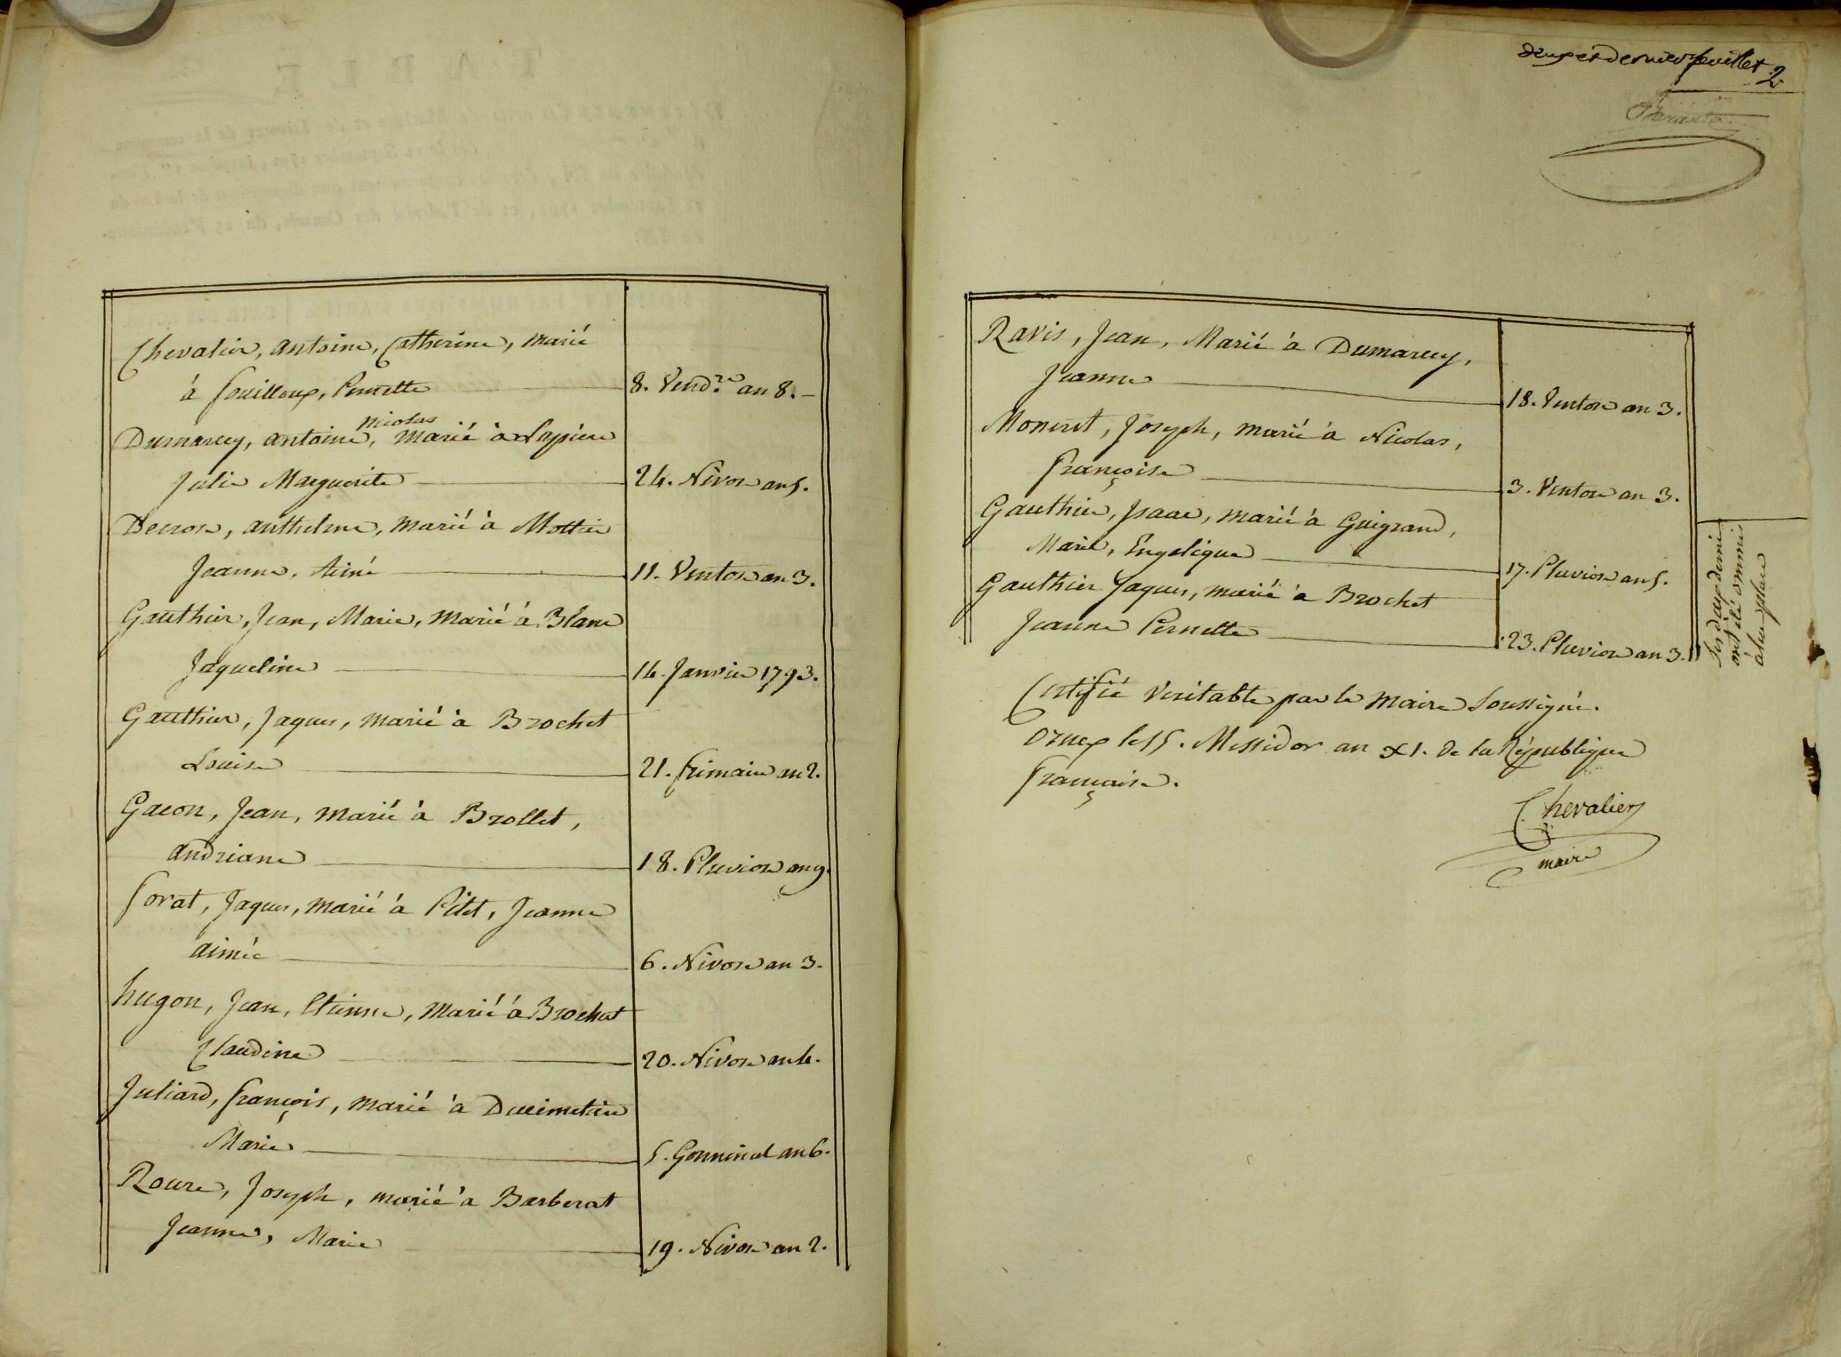 Chevalier, antoine, Catherine, marié
à fouilloux, Pernette
8. Vend.re an 8.
nicolas
Dumarcey, antoine, marié à Lapierre
Julie Marguerite
24. Nivose an 5.
Decrose, anthelme, marié à Mottier
Jeanne, Aimé
11. Ventose an 3.
Gauthier, Jean, Marie, marié à Blanc
Jaqueline
14. Janvier 1793.
Gauthier, Jaques, marié à Brochet
Louise
21. frimaire an 2.
Gacon, Jean, marié à Brollet,
andriane
18. Pluviose an 9.
forat, Jaques, marié à Pitet, Jeanne
aimée
6. Nivose an 3.
hugon, Jean, Etienne, marié à Brochet
Claudine
20. Nivose an 4.
Juliard, françois, marié à Ducimetière
Marie
5. Germinal an 6.
Roure, Joseph, marié à Barberat
Jeanne, Marie
19. Nivose an 2.
deux et dernier feuillet 2
Ravis, Jean, Marié à Dumarcey,
Jeanne
18. Ventose an 3.
Moneret, Joseph, marié à Nicolas,
françoise
3. Ventose an 3.
Gauthier, Isaac, marié à Guigrand,
Marie, Engelique
17. Pluviose an 5.
Gauthier Jaques, marié à Brochet
Jeanne Pernette
23. Pluviose an 3.
Les deux derniers
ont été ommis
à leur place
Certifié Veritable par le maire soussigné.
Ornex le 15. Messidor an XI. de la République
française.
Chevalier
maire